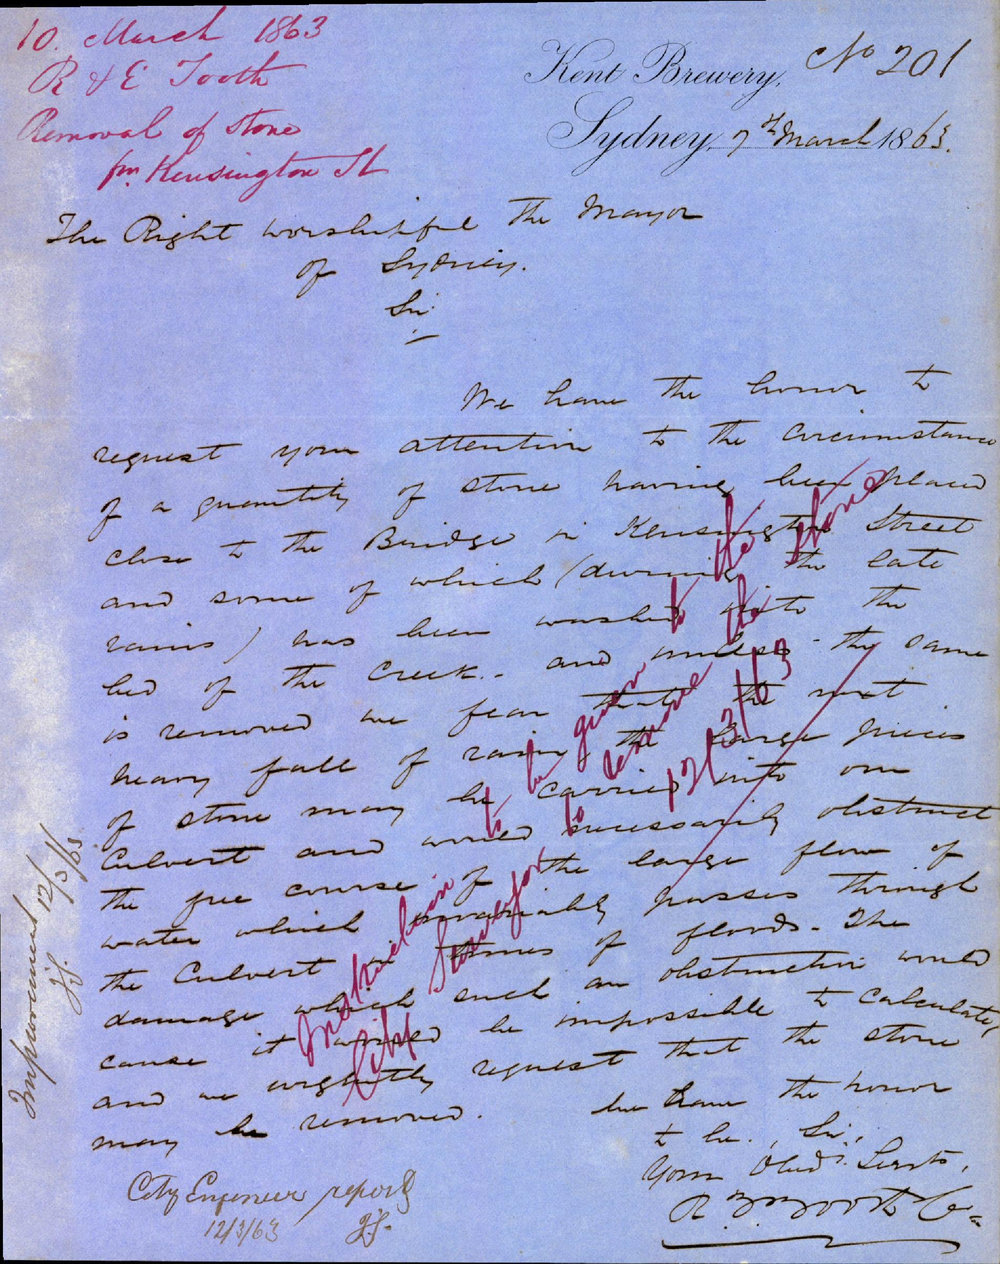 10. March 1863
R & E Tooth
Removal of Stone
fm. Kensington St
No 201
Kent Brewery,
Sydney, 7th March 1863.
The Right Worshipful The Mayor
of Sydney.
Sir
We have the honor to
request your attention to the circumstance
of a quantity of stone having been placed
close to the Bridge in Kensington Street
and some of which (during the late
rains) has been washed into the
bed of the Creek. - and unless the same
is removed we fear that the next
heavy fall of rain, the large pieces
of stone may be carried into our
Culvert and would necessarily obstruct
the free course of the large flow of
water which invariably passes through
the Culvert in times of floods. - The
damage which such an obstruction would
cause it would be impossible to calculate,
and we urgently request that the stone
may be removed.
We have the honor
to be, Sir,
Your Obedt. Servts,
R. Tooth & Co
Instruction to be given to the
City Surveyor to remove the stone
12/3/63
Improvement 12/3/63
City Engineer report
12/3/63